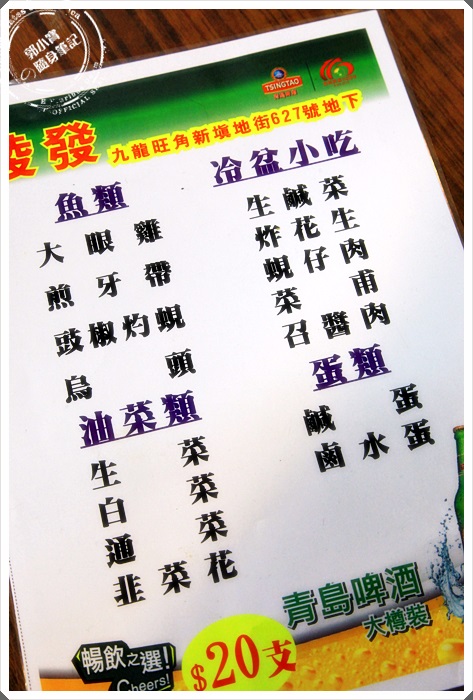 郭小寶
の隨身筆記
TSINGTAO
發
九龍旺角新填地街627號地下
魚類
大眼雞
煎牙帶
豉椒灼蜆
烏頭
油菜類
生菜
白菜
通菜
韭菜花
冷盆小吃
生鹹菜
炸花生
蜆仔肉
菜甫
召醬肉
蛋類
鹹蛋
鹵水蛋
青島啤酒
大樽裝
暢飲之選!
Cheers!
$20支